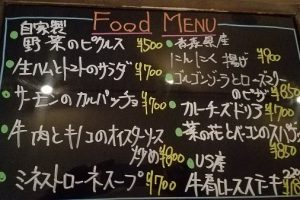 Food MENU
自家製
野菜のピクルス ¥500
生ハムとトマトのサラダ
¥700
サーモンのカルパッチョ
¥700
牛肉とキノコのオイスターソース
炒め ¥800
ミネストローネスープ ¥700
青森県産
にんにく揚げ ¥900
ゴルゴンゾーラとローズマリー
のピザ ¥850
カレーチーズドリア
¥700
菜の花とベーコンのスパ
¥850
US産
牛肩ロースステーキ